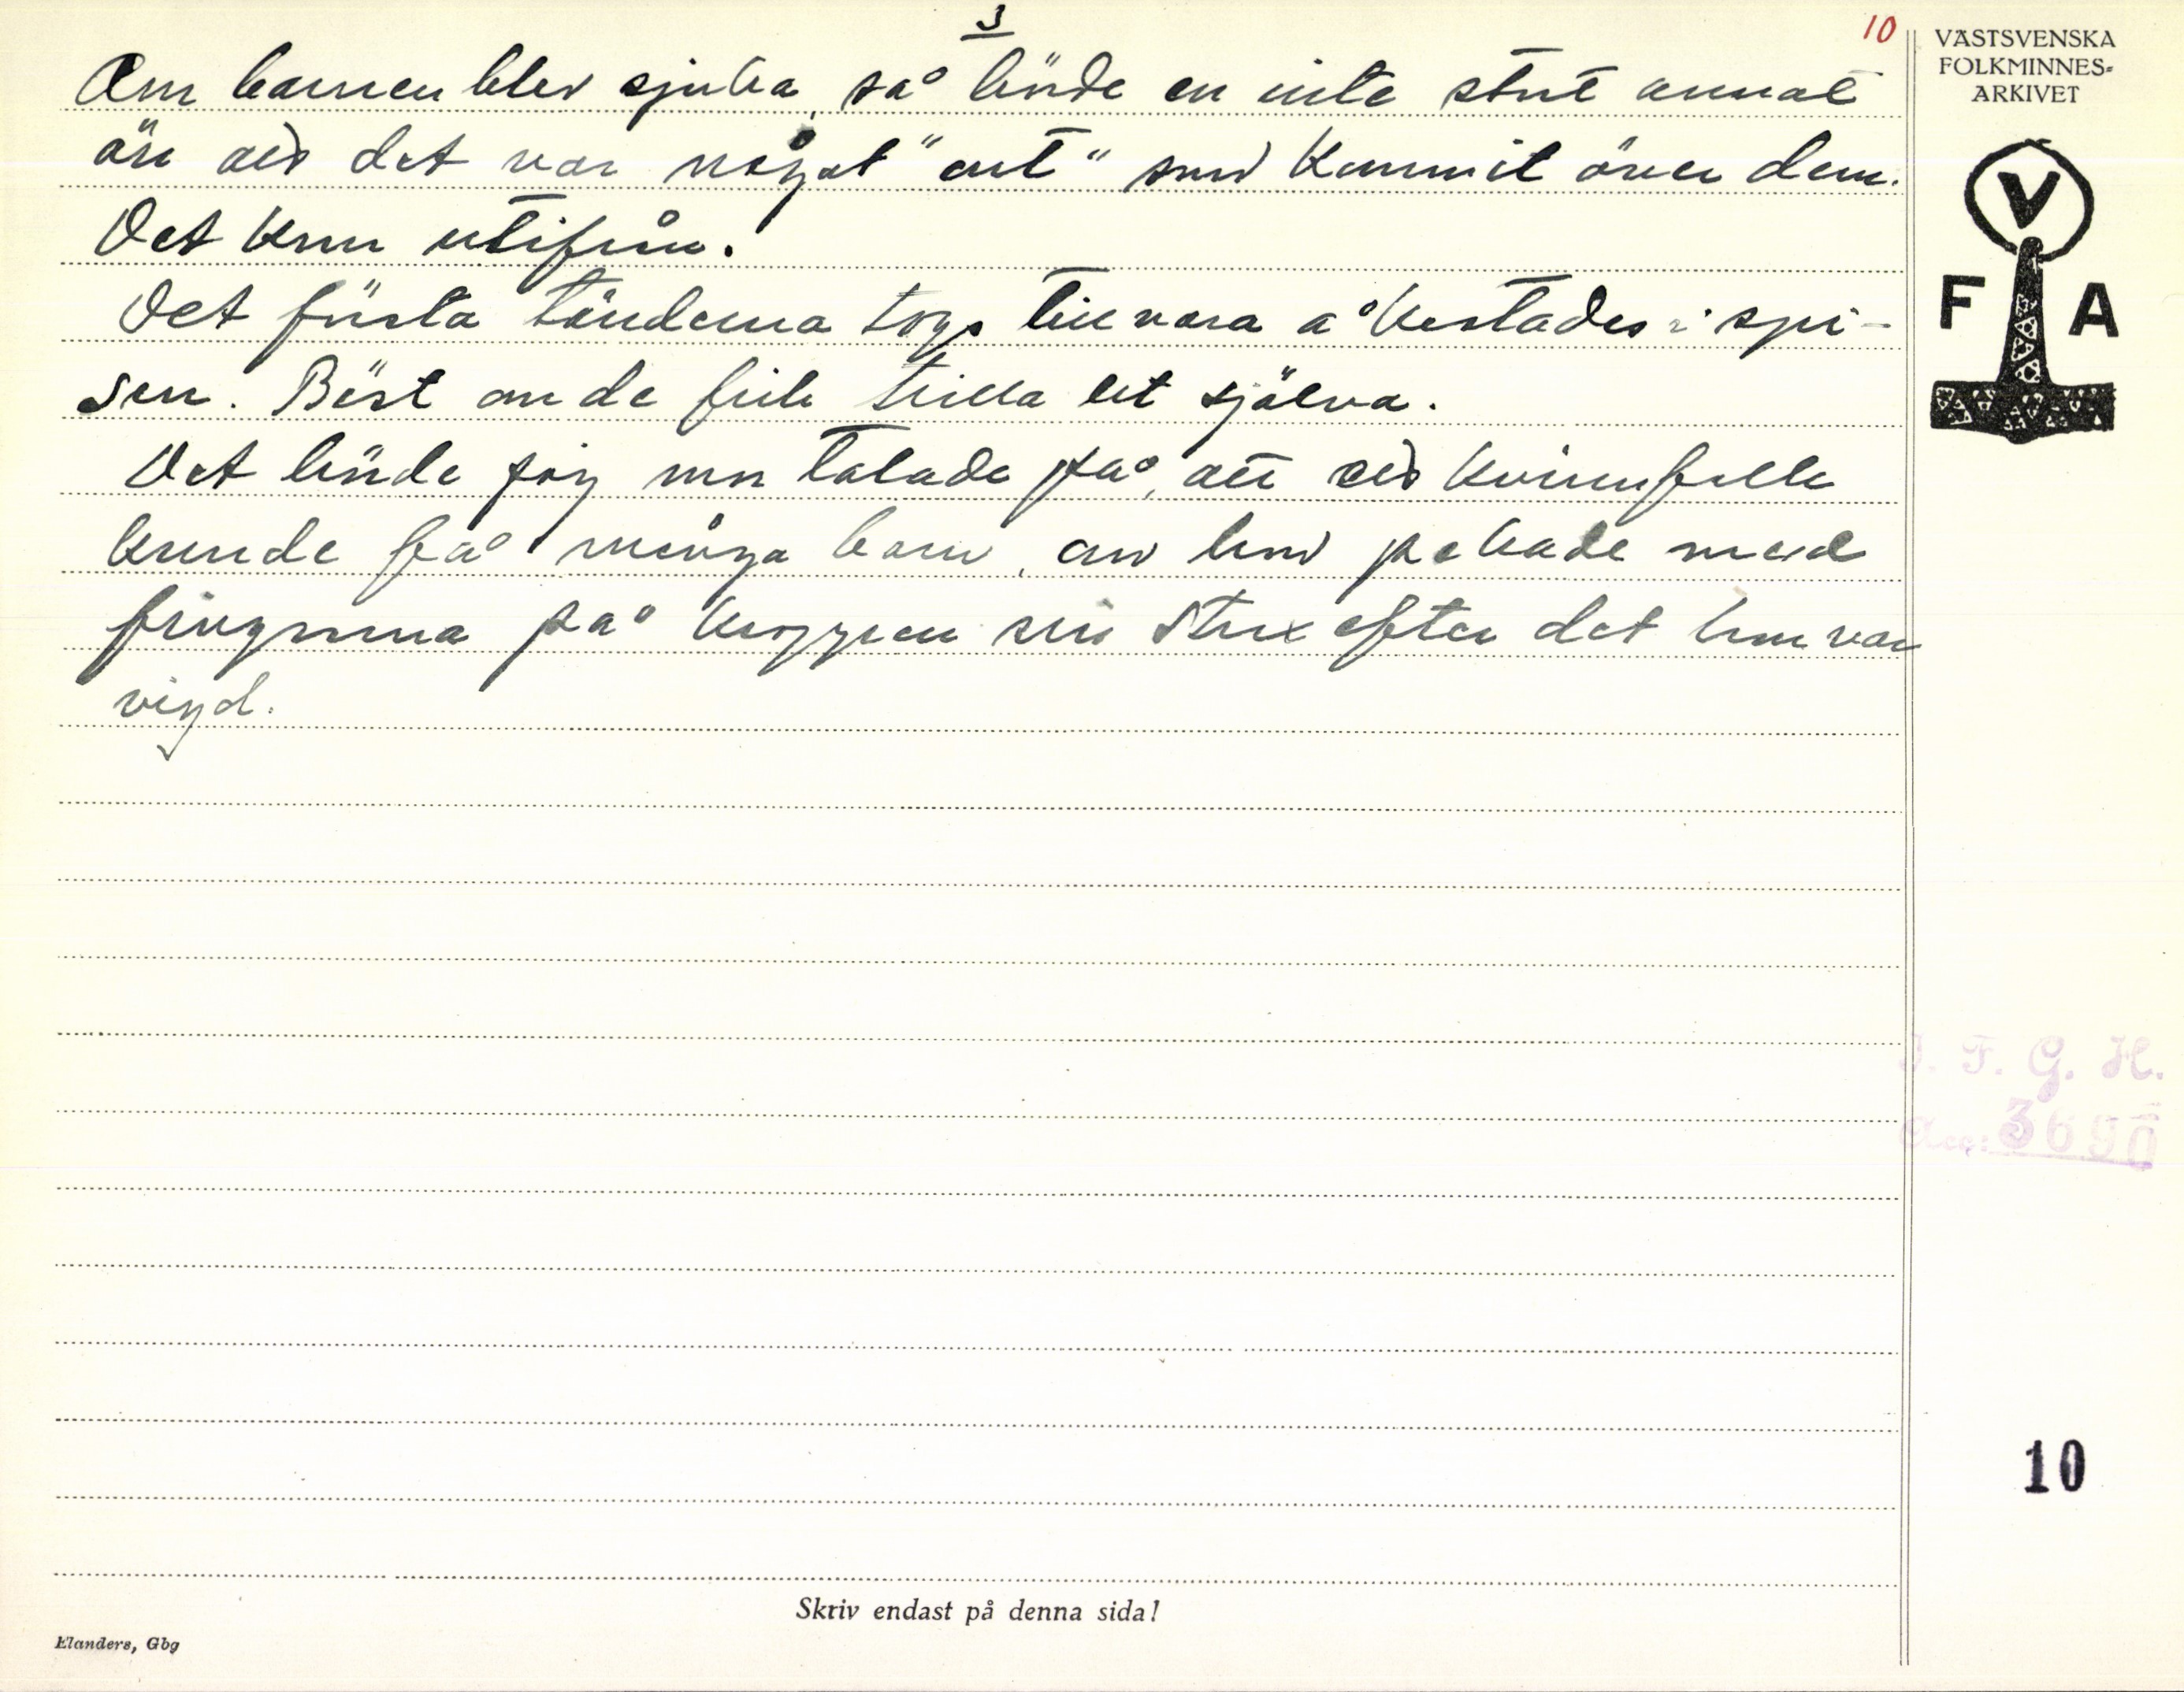 3
10
VÄSTSVENSKA
FOLKMINNES-
ARKIVET
Om barnen blev sjuka, så hände en inte stort annat
än att det var något "ont" som kommit över dem.
V
F A
Det kom utifrån.
Det första tänderna togs tillvara å kastades i spi-
sen. Bäst om de fick trilla ut själva.
Det hände jag mor talade på, att ett kvinnfolk
kunde få många barn, om hon pekade med
fingrarna på kroppen sin strax efter det hon var
vigd.
I. F. G. H.
Acc: 3690
10
Skriv endast på denna sida!
Elanders, Gbg